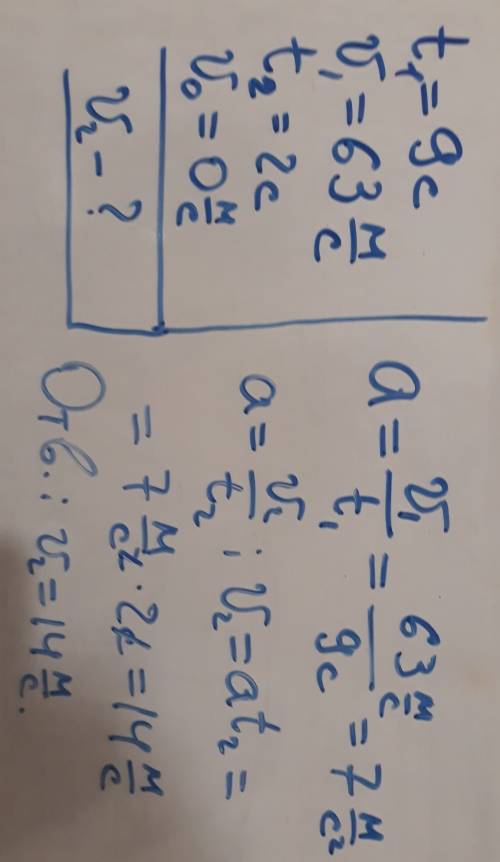 t₁ = 9c
v₁ = 63 м/с
t₂ = 2c
v₀ = 0 м/с
v₂ - ?
a = v₁/t₁ = 63 м/с / 9c = 7 м/с²
a = v₂/t₂ ; v₂ = at₂ =
= 7 м/с² · 2с = 14 м/с
Отв.: v₂ = 14 м/с.